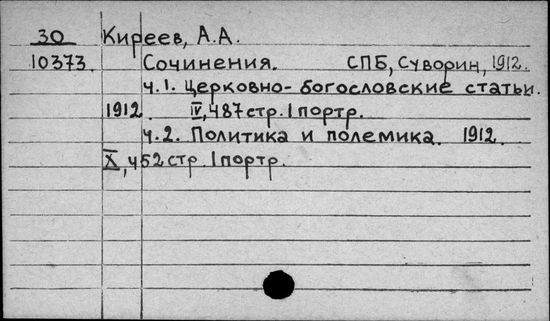 30 Киреев, А.А.
10373. Сочинения. СПБ, Суворин, 1912.
ч.1. Церковно-богословские статьи.
1912. IV, 487 стр. 1 портр.
ч.2. Политика и полемика. 1912.
X, 452 стр. 1 портр.